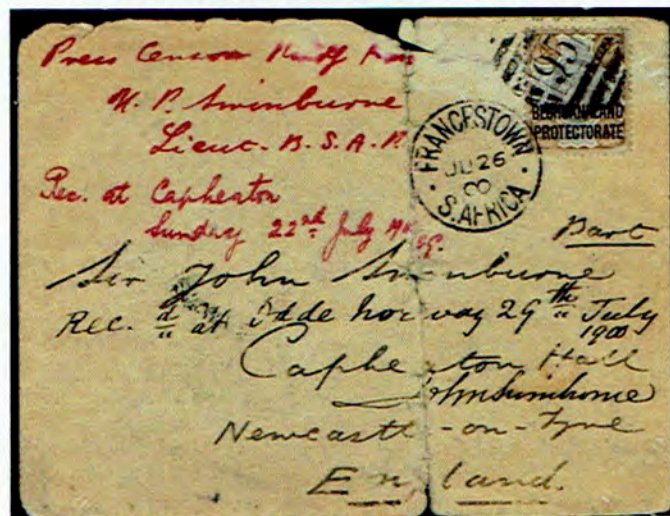 Press Censor
U. P. Swinburne
Lieut. B. S. A. P.
Rec. at Capheaton
Sunday 22nd July
95
BECHUANALAND
PROTECTORATE
FRANCESTOWN
JU 26
S. AFRICA
Bart
Sir John Swinburne
Rec. d at Odde Norway 29th July
1900
Capheaton Hall
John Swinburne
Newcastle-on-Tyne
England.